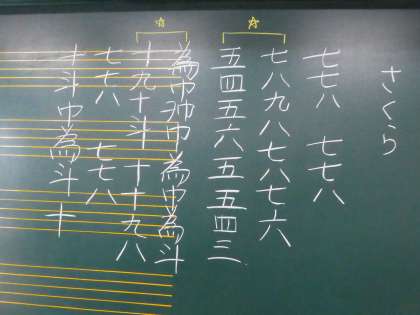 さくら
七七八 七七八
七八九八七八七六
五四五六五五四三
為巾巾為巾為斗
十九十斗 十十九八
七七八 七七八
十斗巾為斗 十